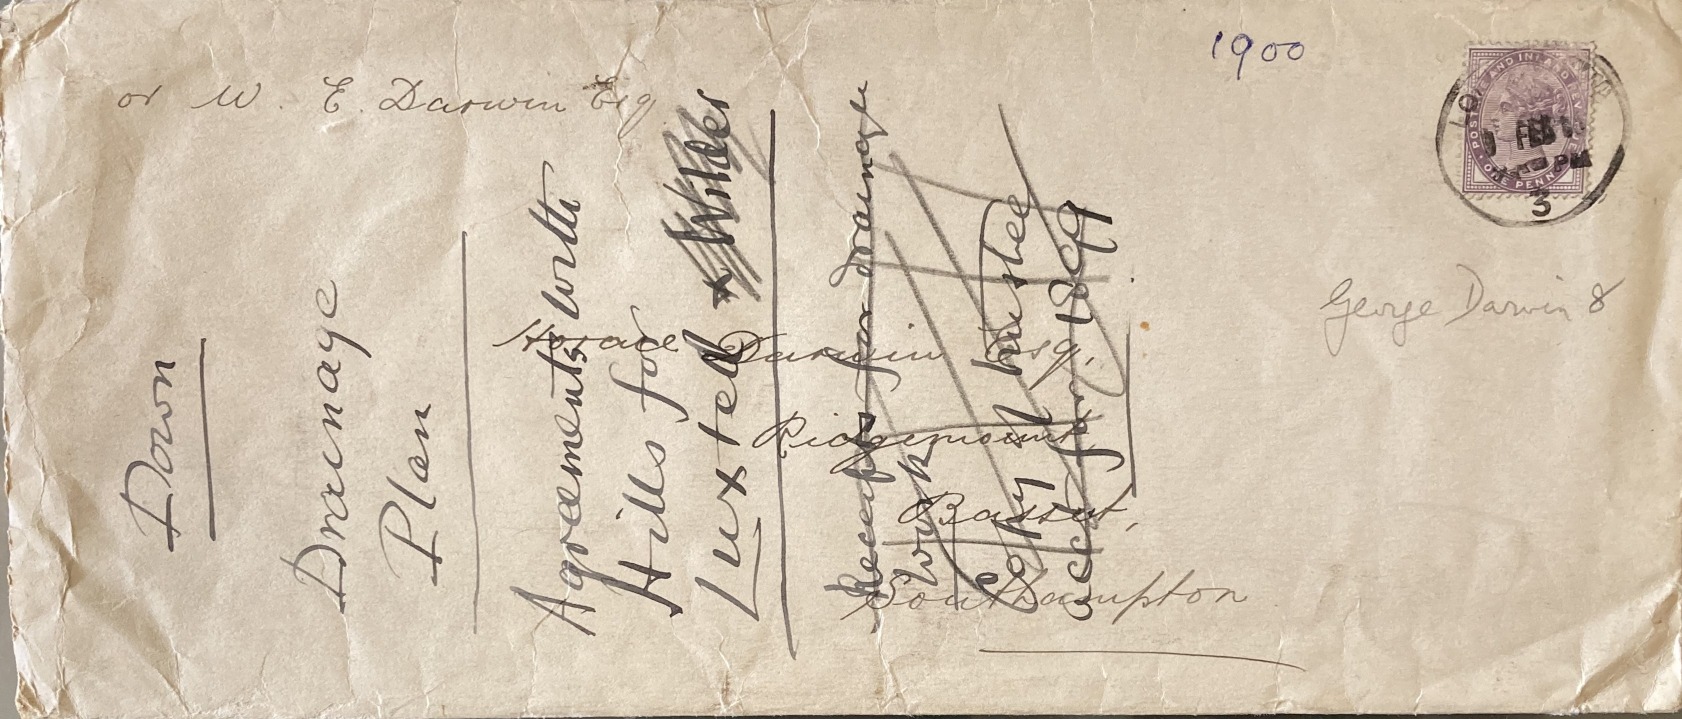 1900
or W. E. Darwin Esq
Horace Darwin Esq.
Ridgemount
Bassett,
Southampton
George Darwin &
POSTAGE AND INLAND REVENUE
ONE PENNY
LONDON
FEB
PM
3
Down
Drainage
Plan
Agreements with
Hills for
Luxted & Wilder
Receipts for drainage
work
Copy of trustee
acct for